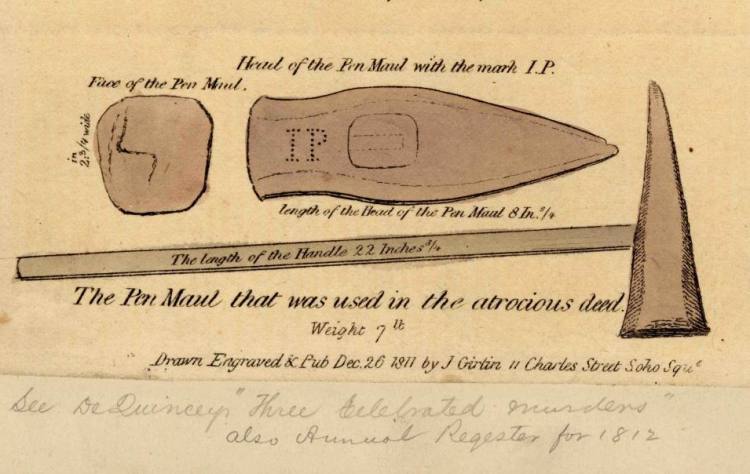 Head of the Pen Maul with the mark I.P.
Face of the Pen Maul.
in
2.3/4 wide
IP
length of the Head of the Pen Maul 8 In.s 3/4
The length of the Handle 22 Inches 3/4
The Pen Maul that was used in the atrocious deed.
Weight 7 lt
Drawn Engraved & Pub Dec. 26 1811 by J Girtin 11 Charles Street Soho Sque
See De Quincey's "Three Celebrated murders"
also Annual Regester for 1812